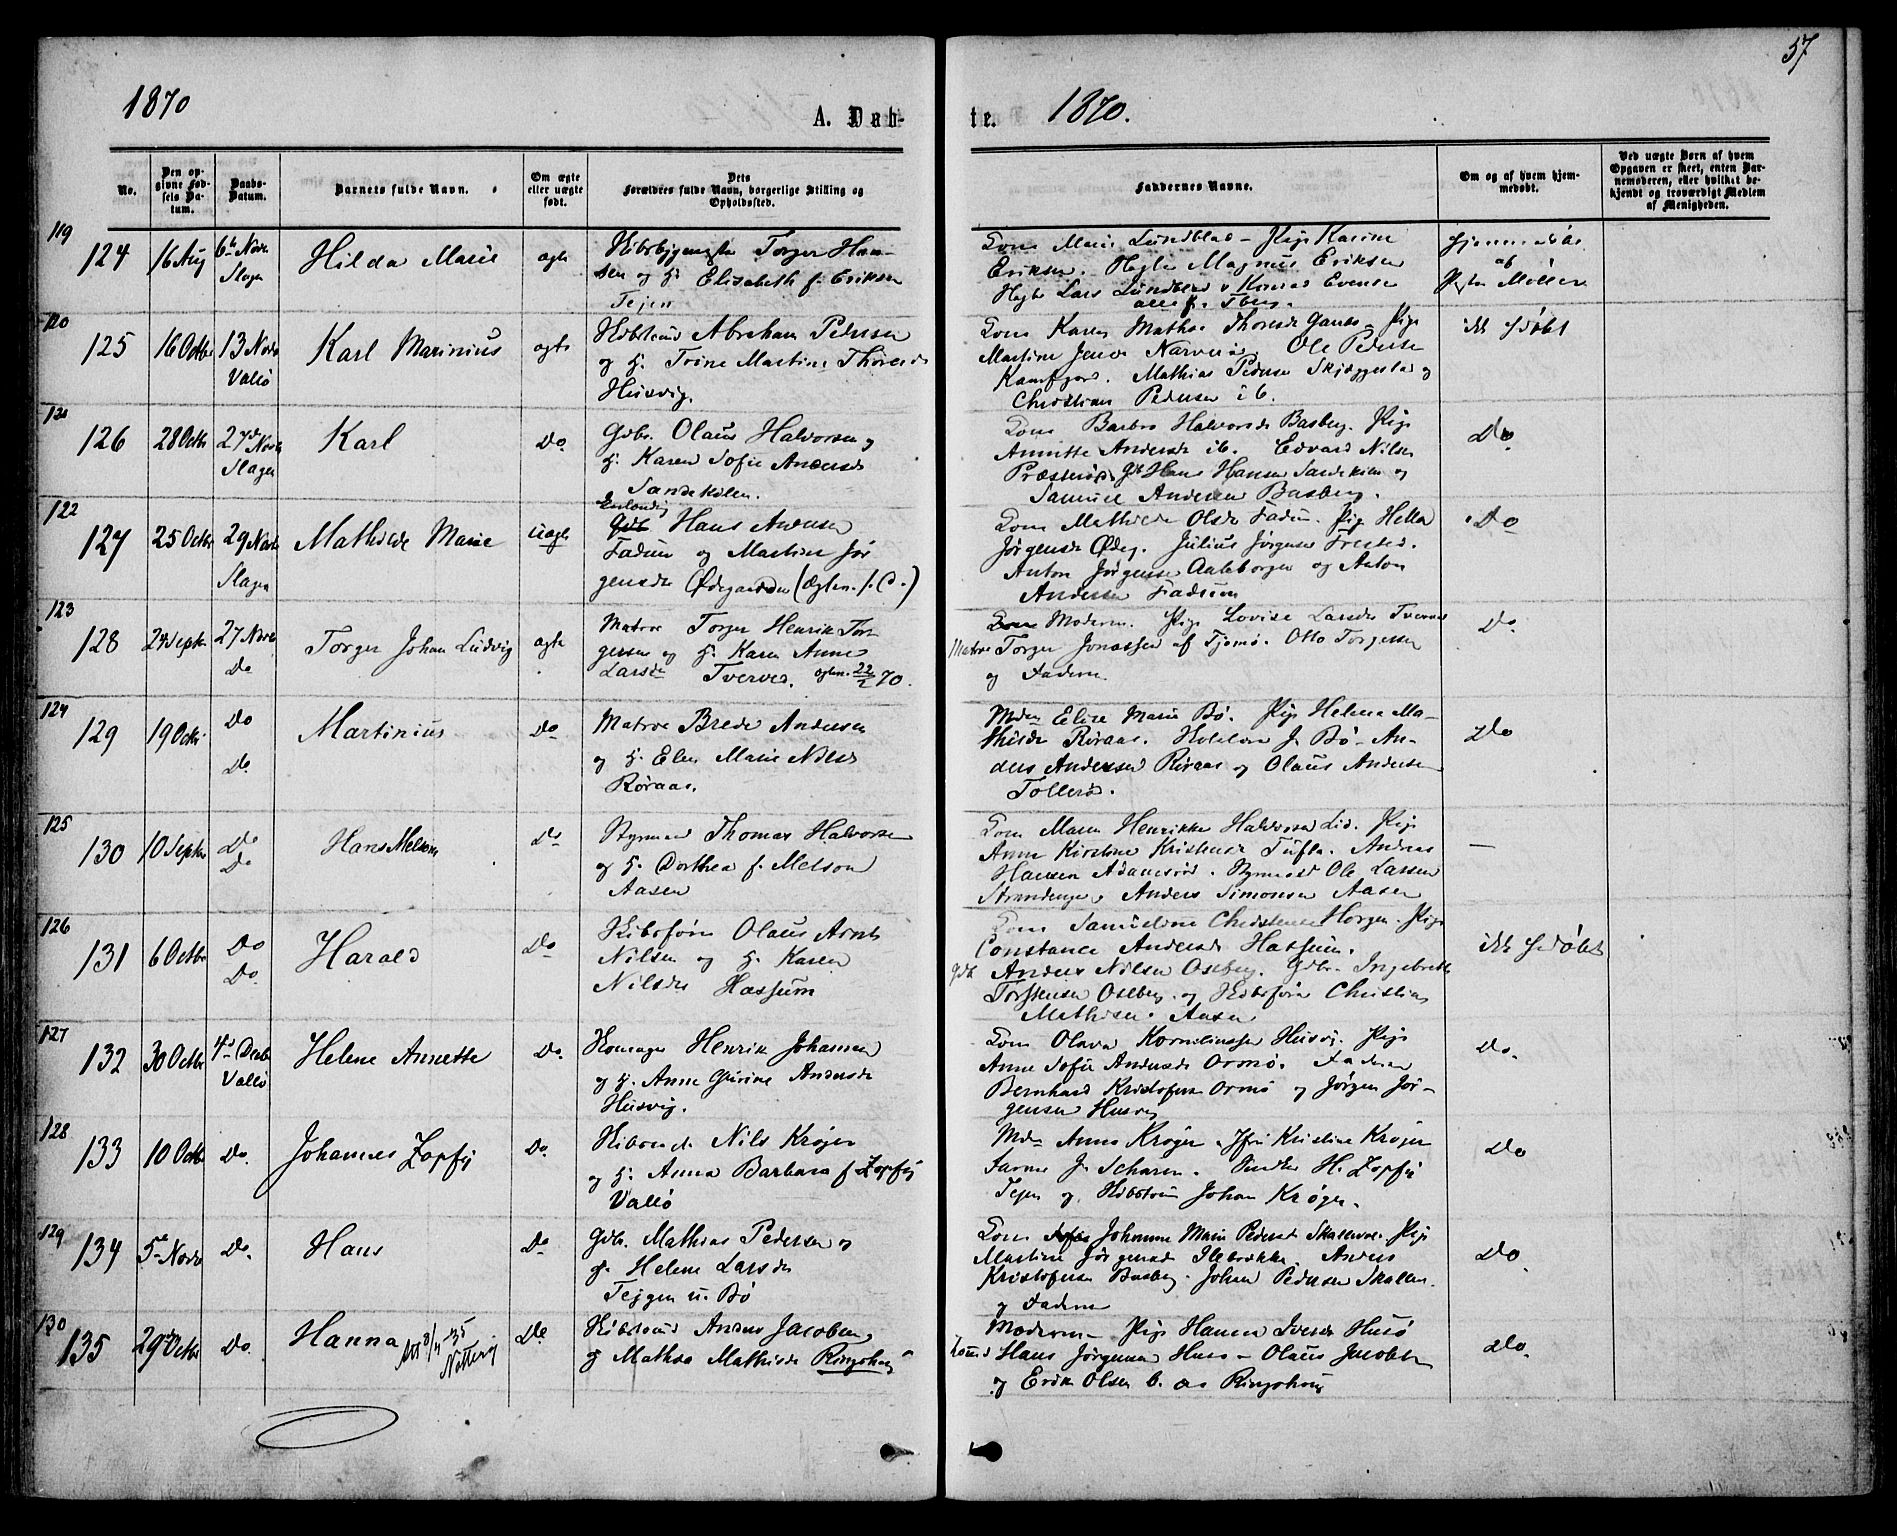 57
1870
A. Døb-
te.
1870.
No.
Den op-
givne Fød-
sels Da-
tum.
Daabs-
Datum.
Barnets fulde Navn.
Om ægte
eller uægte
født.
Dets
Forældres fulde Navn, borgerlige Stilling og
Opholdssted.
Faddernes Navne.
Om og af hvem hjem-
medøbt.
Ved uægte Børn af hvem
Opgaven er skeet, enten Bar-
nemoderen, eller hvilket be-
kjendt og troværdigt Medlem
af Menigheden.
119
124 16 Aug 6te Novbr
Slagen
Hilda Marie
ægte
Skibsbygmester Torger Han-
sen og H. Elisabeth f. Eriksen
Tejen
Kone Maria Lundblad - Pige Karine
Eriksen. Magnus Eriksen
Lars Lundblad Konrad Evensen
alle f. Tberg.
Hjemmedøbt
af
Møller
120
125 16 Octbr 13 Novbr
Vallø
Karl Marinius
ægte
Abraham Pedersen
og H. Trine Martine Thoresdr
Husvig.
Kone Karen Mathea Thoresdr Gaubo. Pige
Martine Jensdr Narverød Ole Pedersen
Kamfjord. Mathias Pedersen Skjæggestad og
Christian Pedersen ib.
ikke hjdøbt
121
126 28 Octbr 27de Novbr
Slagen
Karl
Do
Gdbr. Olaus Halvorsen og
H. Karen Sofie Andersdr
Sandekilen.
Kone Barbro Halvorsdr Basberg. Pige
Annette Andersdr ib. Edvard Nilsen
Præsterød Gdb Hans Hansen Sandekilen og
Samuel Andersen Basberg.
Do
122
127 25 Octbr 29 Novbr
Slagen
Mathilde Marie
uægte
Gdb Hans Andersen
Fadum og Martine Jør
gensdr Ødegaarden (Ægtev. f. C.)
Kone Mathilde Olsdr Fadum. Pige Hella
Jørgensdr Ødeg. Julius Jørgensen Trested.
Anton Jørgensen Aaleborgen og Anton
Andersen Fadum
Do
123
128 24 Septbr 27 Novbr
Do
Torger Johan Ludvig
ægte
Matros Torger Henrik Tor
gersen og H. Karen Anne
Larsdr Tverved. ægtev. 22/2 70.
Moderen. Pige Lovise Larsdr Tverved
Matros Torger Jonassen af Tjømø. Otto Torgersen
og Faderen
Do
124
129 19 Octbr Do
Do.
Martinius
Do
Matros Brede Andersen
og H. Elen Marie Nilsdr
Røraas.
Mdm Elise Marie Bø. Pige Helene Ma-
thisdr Røraas. J. Bø - An-
ders Andersen Røraas og Olaus Andersen
Tollerød.
Do
125
130 10 Septbr Do
Do
Hans Melsom
Do
Styrmand Thomas Halvorsen
og H. Dorthea f. Melsom
Aasen
Kone Maren Henrikke Halvorsen Lid. Pige
Anne Kirstine Kristensdr Tufte. Andreas
Hansen Adamsrød. Styrmand Ole Larsen
Strandengen, Anders Simonsen Aasen
—
126
131 6 Octbr Do
Do.
Harald
Do
Skibsfører Olaus Arnt
Nilsen og H. Karen
Nilsdr Hassum
Kone Samueline Christense Horgen. Pige
Constance Andersdr Hassum.
Gdb. Anders Nilsen Oseberg. Gdbr. Ingebret
Torstensen Oseberg og Skibsfører Christian
Mathisen. Aasen
ikke hjdøbt
127
132 30 Octbr 4de Decbr
Vallø
Helene Annette
Do.
Henrik Johansen
og H. Anne Gurine Andersdr
Husvig.
Kone Olava Korneliussen Husvig. Pige
Anne Sofie Andersdr Ormø. Faderen
Bernhard Kristofersen Ormø og Jørgen Jør-
gensen Husvig
Do.
128
133 10 Octbr Do.
Johannes Zopfy
Do.
Nils Krøjer
og H. Anna Barbara f. Zopfy
Vallø
Mdm Anna Krøger. Jfr Kristine Krøjer
J. Scharen. H. Zopfy
Tejen og Johan Krøger.
Do
129
134 5te Novbr Do.
Hans
Do
Gdb. Mathias Pedersen og
H. Helene Larsdr
Tejgen u. Bø
Kone Johanne Marie Pedersdr Skallevold. Pige
Martine Jørgensdr Ilebrække, Anders
Kristofersen Basberg. Johan Pedersen Skallev.
og Faderen
Do
130
135 29de Octbr Do.
Hanna
Att 8/4 -35
Nøtterøy
Do
Anders Jacobsen
og Mathea Mathisdr Ringshaug
Moderen - Pige Hanna Iversdr Husø
Hans Jørgensen Husø - Olaus Jacobsen
og Erik Olsen b. as Ringshaug
Do.